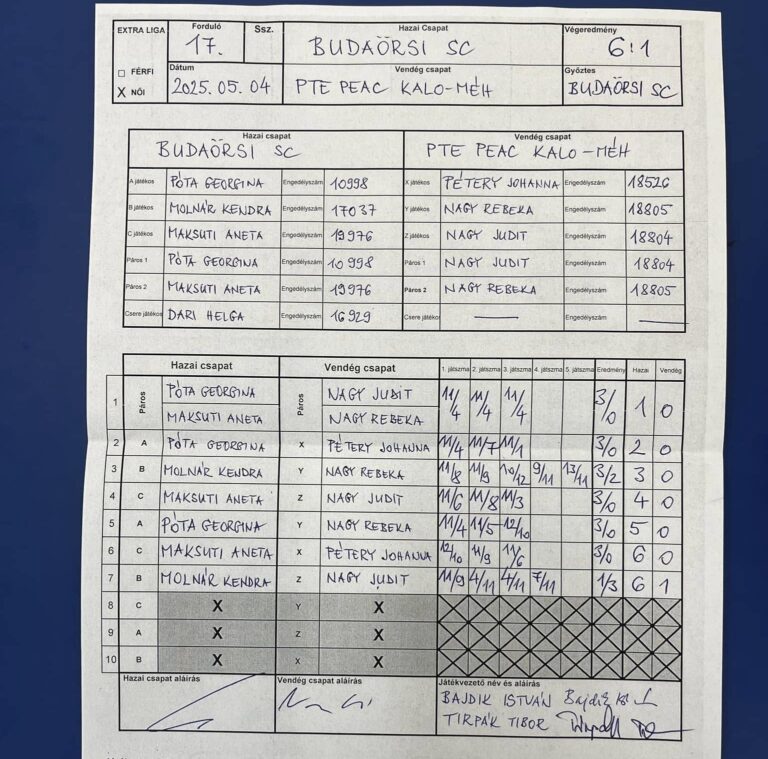 EXTRA LIGA Forduló 17. Ssz. Hazai Csapat BUDAÖRSI SC Végeredmény 6:1
□ FÉRFI
X NŐI
Dátum 2025.05.04 Vendég csapat PTE PEAC KALO-MÉH Győztes BUDAÖRSI SC
Hazai csapat BUDAÖRSI SC Vendég csapat PTE PEAC KALO-MÉH
A játékos PÓTA GEORGINA Engedélyszám 10998 X játékos PÉTERY JOHANNA Engedélyszám 18526
B játékos MOLNÁR KENDRA Engedélyszám 17037 Y játékos NAGY REBEKA Engedélyszám 18805
C játékos MAKSUTI ANETA Engedélyszám 19976 Z játékos NAGY JUDIT Engedélyszám 18804
Páros 1 PÓTA GEORGINA Engedélyszám 10998 Páros 1 NAGY JUDIT Engedélyszám 18804
Páros 2 MAKSUTI ANETA Engedélyszám 19976 Páros 2 NAGY REBEKA Engedélyszám 18805
Csere játékos DARI HELGA Engedélyszám 16929 Csere játékos — Engedélyszám —
Hazai csapat Vendég csapat 1. játszma 2. játszma 3. játszma 4. játszma 5. játszma Eredmény Hazai Vendég
1 Páros PÓTA GEORGINA Páros NAGY JUDIT 11/4 11/4 11/4 3/0 1 0
MAKSUTI ANETA NAGY REBEKA
2 A PÓTA GEORGINA X PÉTERY JOHANNA 11/4 11/7 11/1 3/0 2 0
3 B MOLNÁR KENDRA Y NAGY REBEKA 11/8 11/9 10/12 9/11 13/11 3/2 3 0
4 C MAKSUTI ANETA Z NAGY JUDIT 11/6 11/8 11/3 3/0 4 0
5 A PÓTA GEORGINA Y NAGY REBEKA 11/4 11/5 12/10 3/0 5 0
6 C MAKSUTI ANETA X PÉTERY JOHANNA 12/10 11/9 11/6 3/0 6 0
7 B MOLNÁR KENDRA Z NAGY JUDIT 11/9 4/11 4/11 7/11 1/3 6 1
8 C X Y X
9 A X Z X
10 B X X X
Hazai csapat aláírás Vendég csapat aláírás Játékvezető név és aláírás
BAJDIK ISTVÁN
TIRPÁK TIBOR